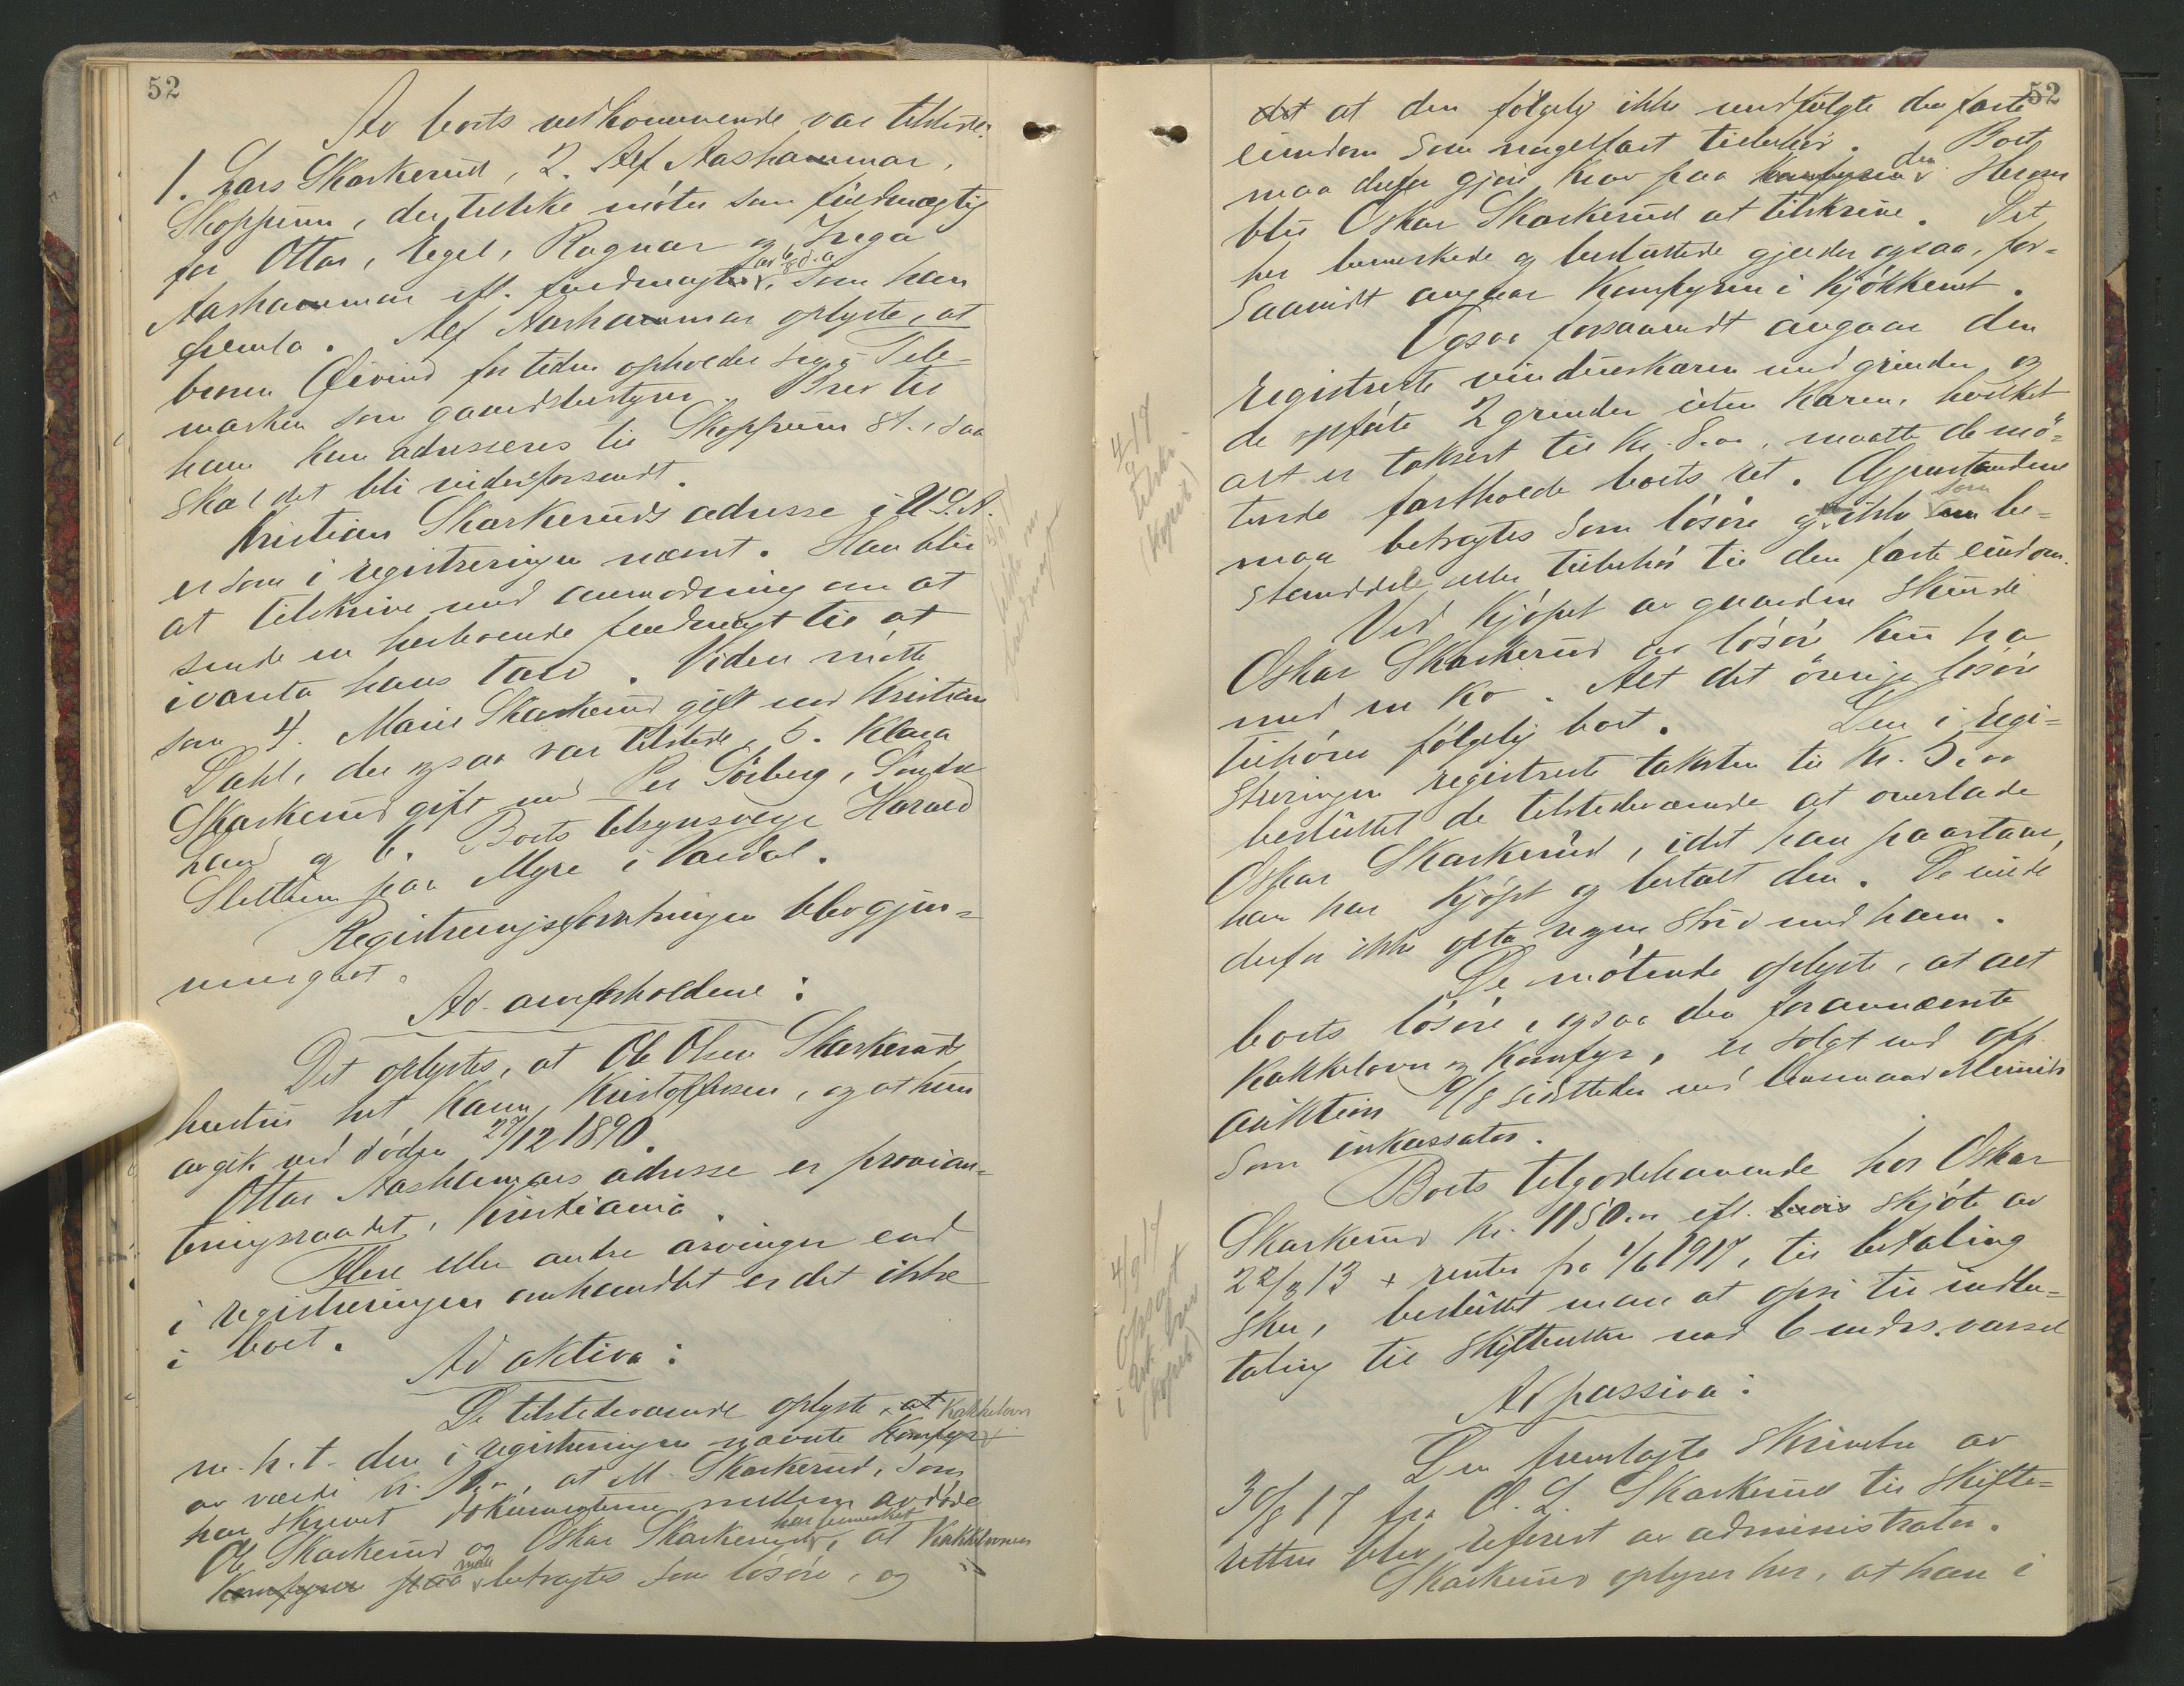 52
Av boets vedkommende var tilstede:
1. Lars Skarkerud, 2. Alf Aashammar,
Skoppum, der tillike møter som fuldmægtig
for Ottar, Egel, Ragnar og Inga
Aashammar efl. fuldmagter av 6/8 d.a., som han
fremla. Alf Aashammar oplyste, at
broren Øivind for tiden opholder sig i Tele-
marken som gaardsbestyrer. Brev til
ham kan adresseres til Skoppum st., saa
skal det bli videresendt.
Kristian Skarkeruds adresse i U.S.A.
er som i registreringen nævnt. Han blir
at tilskrive med anmodning om at
sende en herboende fuldmagt til at
ivareta hans tarv. Viden møtte
som 4. Marie Skarkerud gift med Kristian
Dahl, der ogsaa var tilstede, 5. Klara
Skarkerud gift med Per Sörberg, Søndre
Land og 6. Boets tilsynsverge Harald
Slettum paa Myre i Vardal.
Registreringsforretningen blev gjen-
nemgaat.
Ad arveforholdene:
Det oplystes, at Ole Olsen Skarkeruds
hustru het Karen Kristoffersen, og at hun
avgik ved døden 27/12 1890.
Ottar Aashammars adresse er provian-
teringsraadet, Kristiania.
Flere eller andre arvinger end
i registreringen omhandlet er det ikke
i boet.
Ad aktiva:
De tilstedeværende oplyste, at Kakkelovn
m.h.t. den i registreringen nævnte Komfyr
av værdi kr. at M. Skarkerud, som
har skrevet dokumenterne mellem avdøde
Ole Skarkerud og Oskar Skarkerud har bemerket, at Kakkelovnen
Komfyren maa betragtes som løsøre, og
5/9 17
fuldmagt
52
det at den følgelig ikke medfulgte den faste
eiendom som nagelfast tilbehør. Boet
maa derfor gjøre krav paa Komfyren den. Herom
blir Oskar Skarkerud at tilskrive. Det
her bemerkede og besluttede gjælder ogsaa, for-
saavidt angaar Komfyren i Kjøkkenet.
Ogsaa forsaavidt angaar den
registrerte vindueskarm med grinder og
de opførte 2 grinder uten Karm, hvilket
alt er taksert til kr. 8.00, maatte de mø-
tende fastholde boets ret. Gjenstandene
maa betragtes som løsøre og ikke som be-
standdele eller tilbehør til den faste eiendom.
Ved Kjøpet av gaarden skulde
Oskar Skarkerud av løsøre kun ha
med en Ko. Alt det øvrige løsøre
tilhører følgelig boet. Den i regi-
streringen registrerte taksten til kr. 5.00
besluttet de tilstedeværende at overlade
Oskar Skarkerud, idet han paastaar,
han har kjøpt og betalt den. De vilde
derfor ikke opta nogen strid med ham.
De møtende oplyste, at alt
boets løsøre, ogsaa den forannævnte
Kakkelovn og Komfyr, er solgt ved opp.
auktion sidstleden med
som inkassator.
Boets tilgodehavende hos Oskar
Skarkerud kr. 1150.00 efl. bevis skjøte av
22/8 13 + renter fra 1/6 1917, til betaling
sker, besluttet man at opsi til indbe-
taling til skifteretten med 6 mdrs. varsel
Ad passiva:
Den fremlagte skrivelse av
30/8 17 fra O. L. Skarkerud til skifte-
retten blev referert av administrator.
Skarkerud oplyser her, at han i
4/9 17
tilskr.
(Kopieb)
4/9 17
opsagt
i rek brev
(Kopieb)